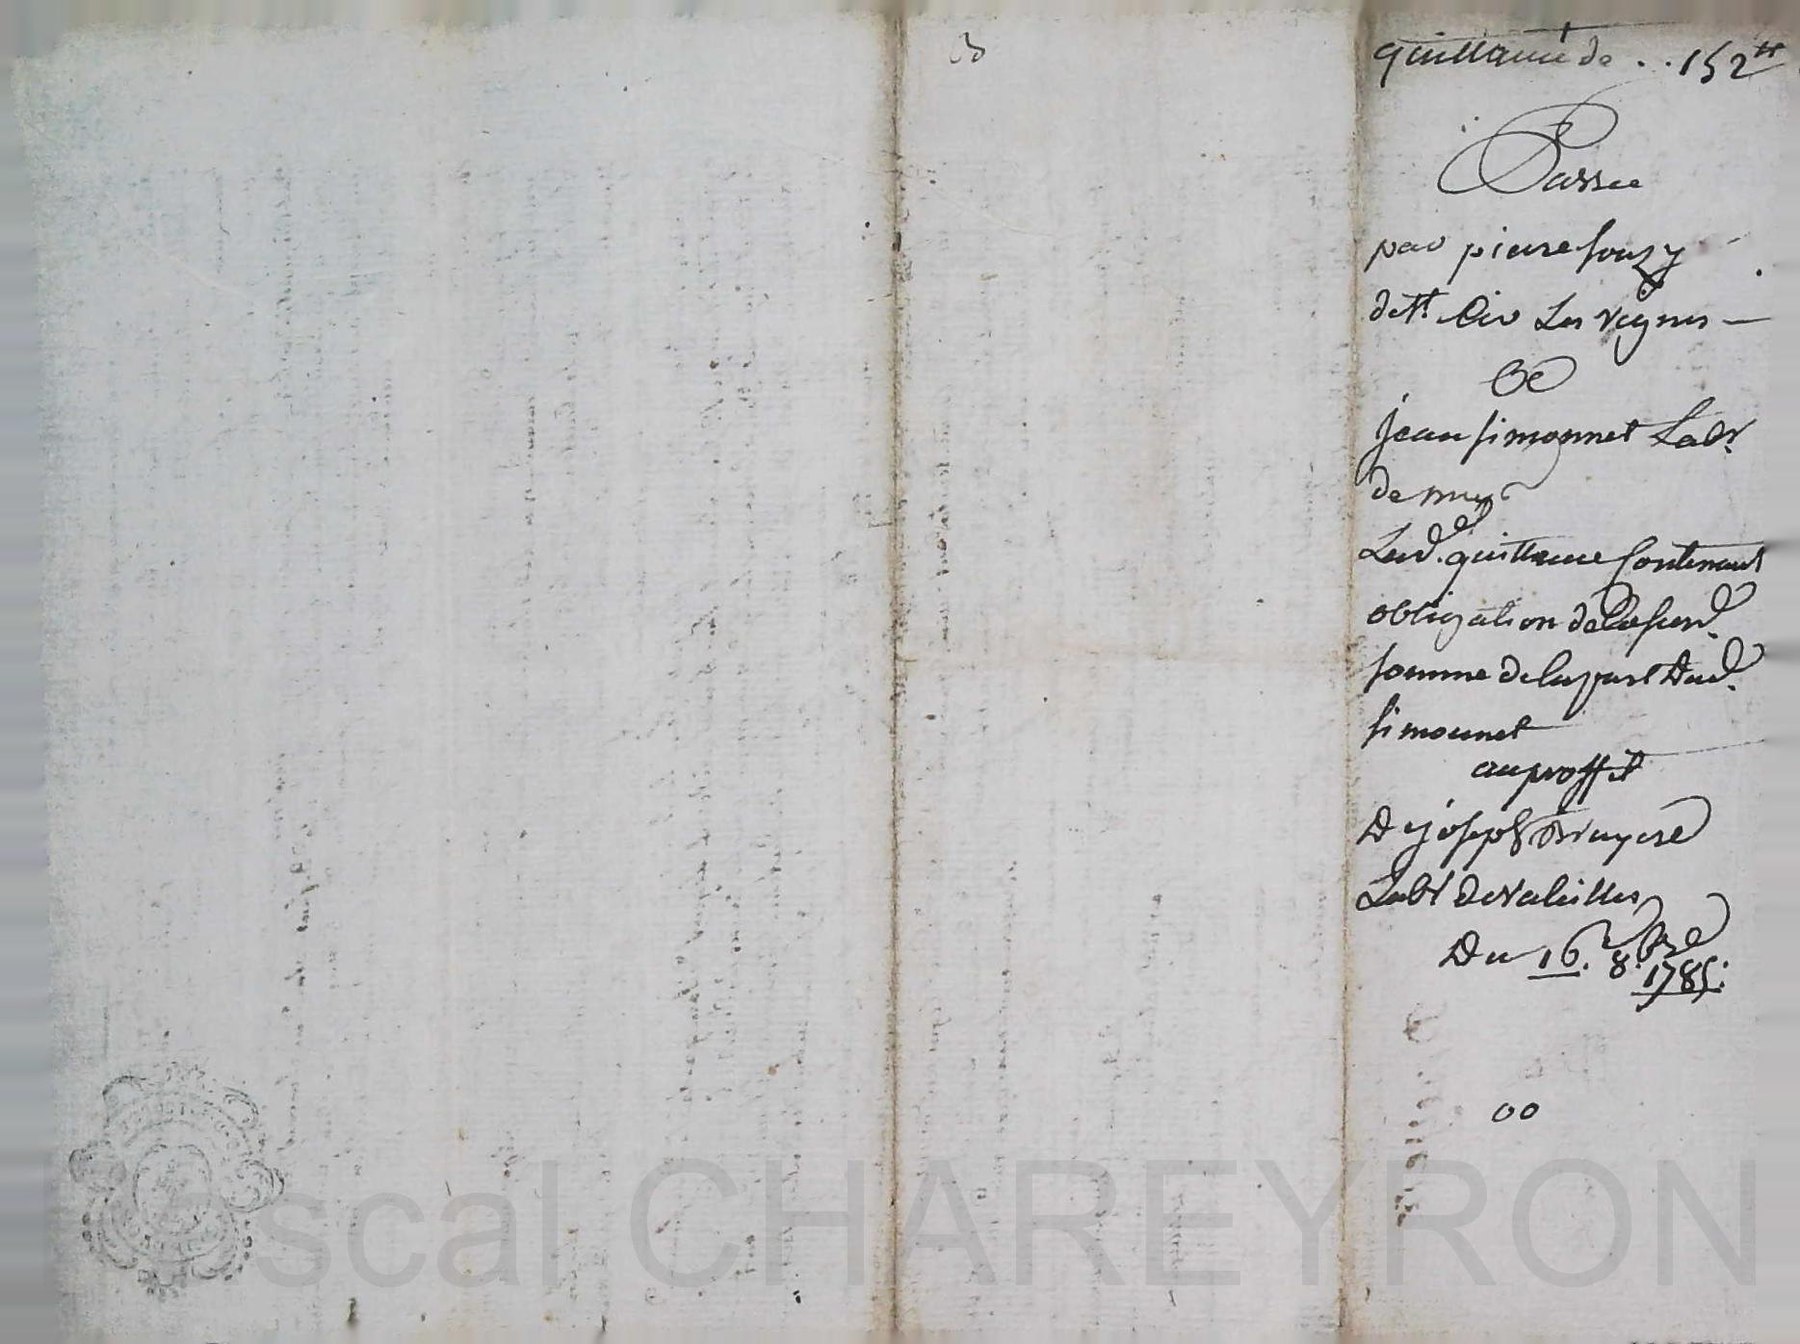 quittance de . . 152 tt
Passee
par pierre souzy
de St. Cir Les vignes —
Et
jean simonnet Labr.
de
Lad. quittance Contenant
obligation de La susd.
somme de la part Dud.
simonnet
au proffit
De joseph Bruyere
Labr de Valeilles
Du 16. 8.bre
1785.
00
scal CHAREYRON